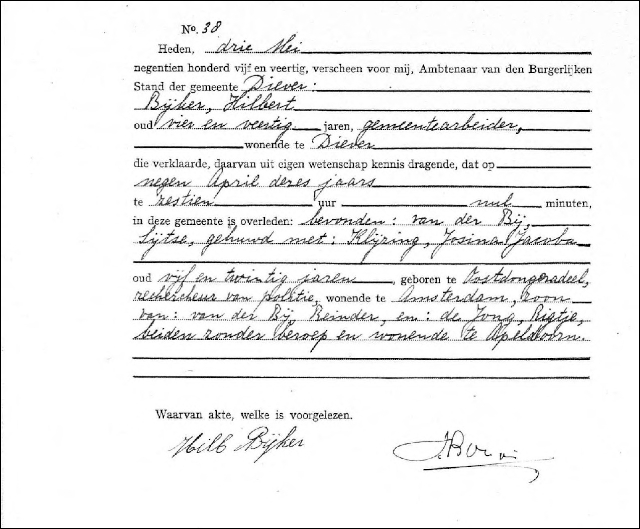 No. 38
Heden, drie Mei
negentien honderd vijf en veertig, verscheen voor mij, Ambtenaar van den Burgerlijken
Stand der gemeente Diever:
Bijker, Hilbert
oud vier en veertig jaren, gemeentearbeider,
wonende te Diever
die verklaarde, daarvan uit eigen wetenschap kennis dragende, dat op
negen April dezes jaars
te zestien uur nul minuten,
in deze gemeente is overleden: bevonden: van der Bij,
Sijtse, gehuwd met: Klijzing, Josina Jacoba
oud vijf en twintig jaren, geboren te Oostdongeradeel,
rechercheur van politie, wonende te Amsterdam, zoon
van: van der Bij, Reinder, en: de Jong, Rigtje,
beiden zonder beroep en wonende te Apeldoorn.
Waarvan akte, welke is voorgelezen.
Hilb Bijker